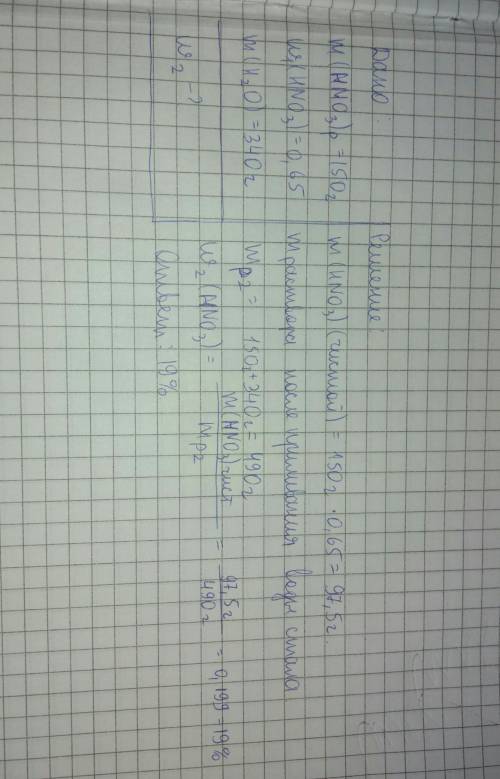 Дано:
m(HNO3)р = 150г
ω1(HNO3) = 0,65
m(H2O) = 340г
ω2 - ?
Решение:
m(HNO3)(чистой) = 150г · 0,65 = 97,5г.
m раствора после приливания воды стала
mр2 = 150г + 340г = 490г
ω2(HNO3) = m(HNO3)чист / mр2 = 97,5г / 490г = 0,199 = 19%
Ответ: 19%